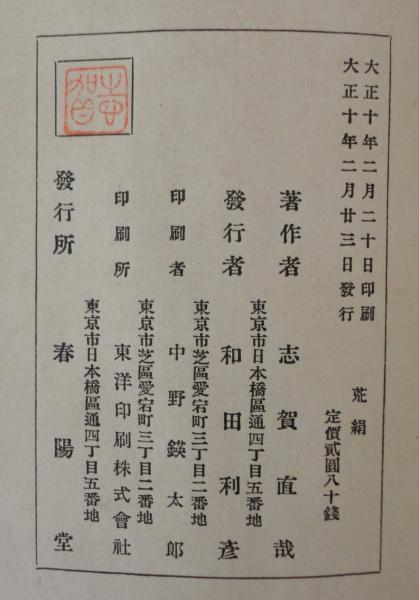 大正十年二月二十日印刷
大正十年二月廿三日發行
荒絹
定價貳圓八十錢
著作者 志賀直哉
東京市日本橋區通四丁目五番地
發行者 和田利彥
東京市芝區愛宕町三丁目二番地
印刷者 中野鍈太郎
東京市芝區愛宕町三丁目二番地
印刷所 東洋印刷株式會社
東京市日本橋區通四丁目五番地
發行所 春陽堂
志賀